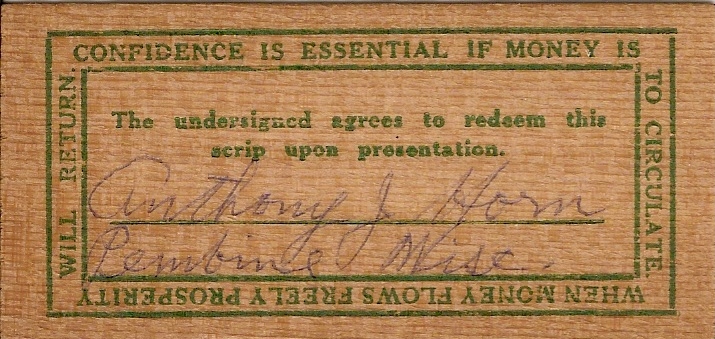 CONFIDENCE IS ESSENTIAL IF MONEY IS
TO CIRCULATE
WHEN MONEY FLOWS FREELY PROSPERITY
WILL RETURN.
The undersigned agrees to redeem this
scrip upon presentation.
Anthony J Horn
Pembine Wisc.